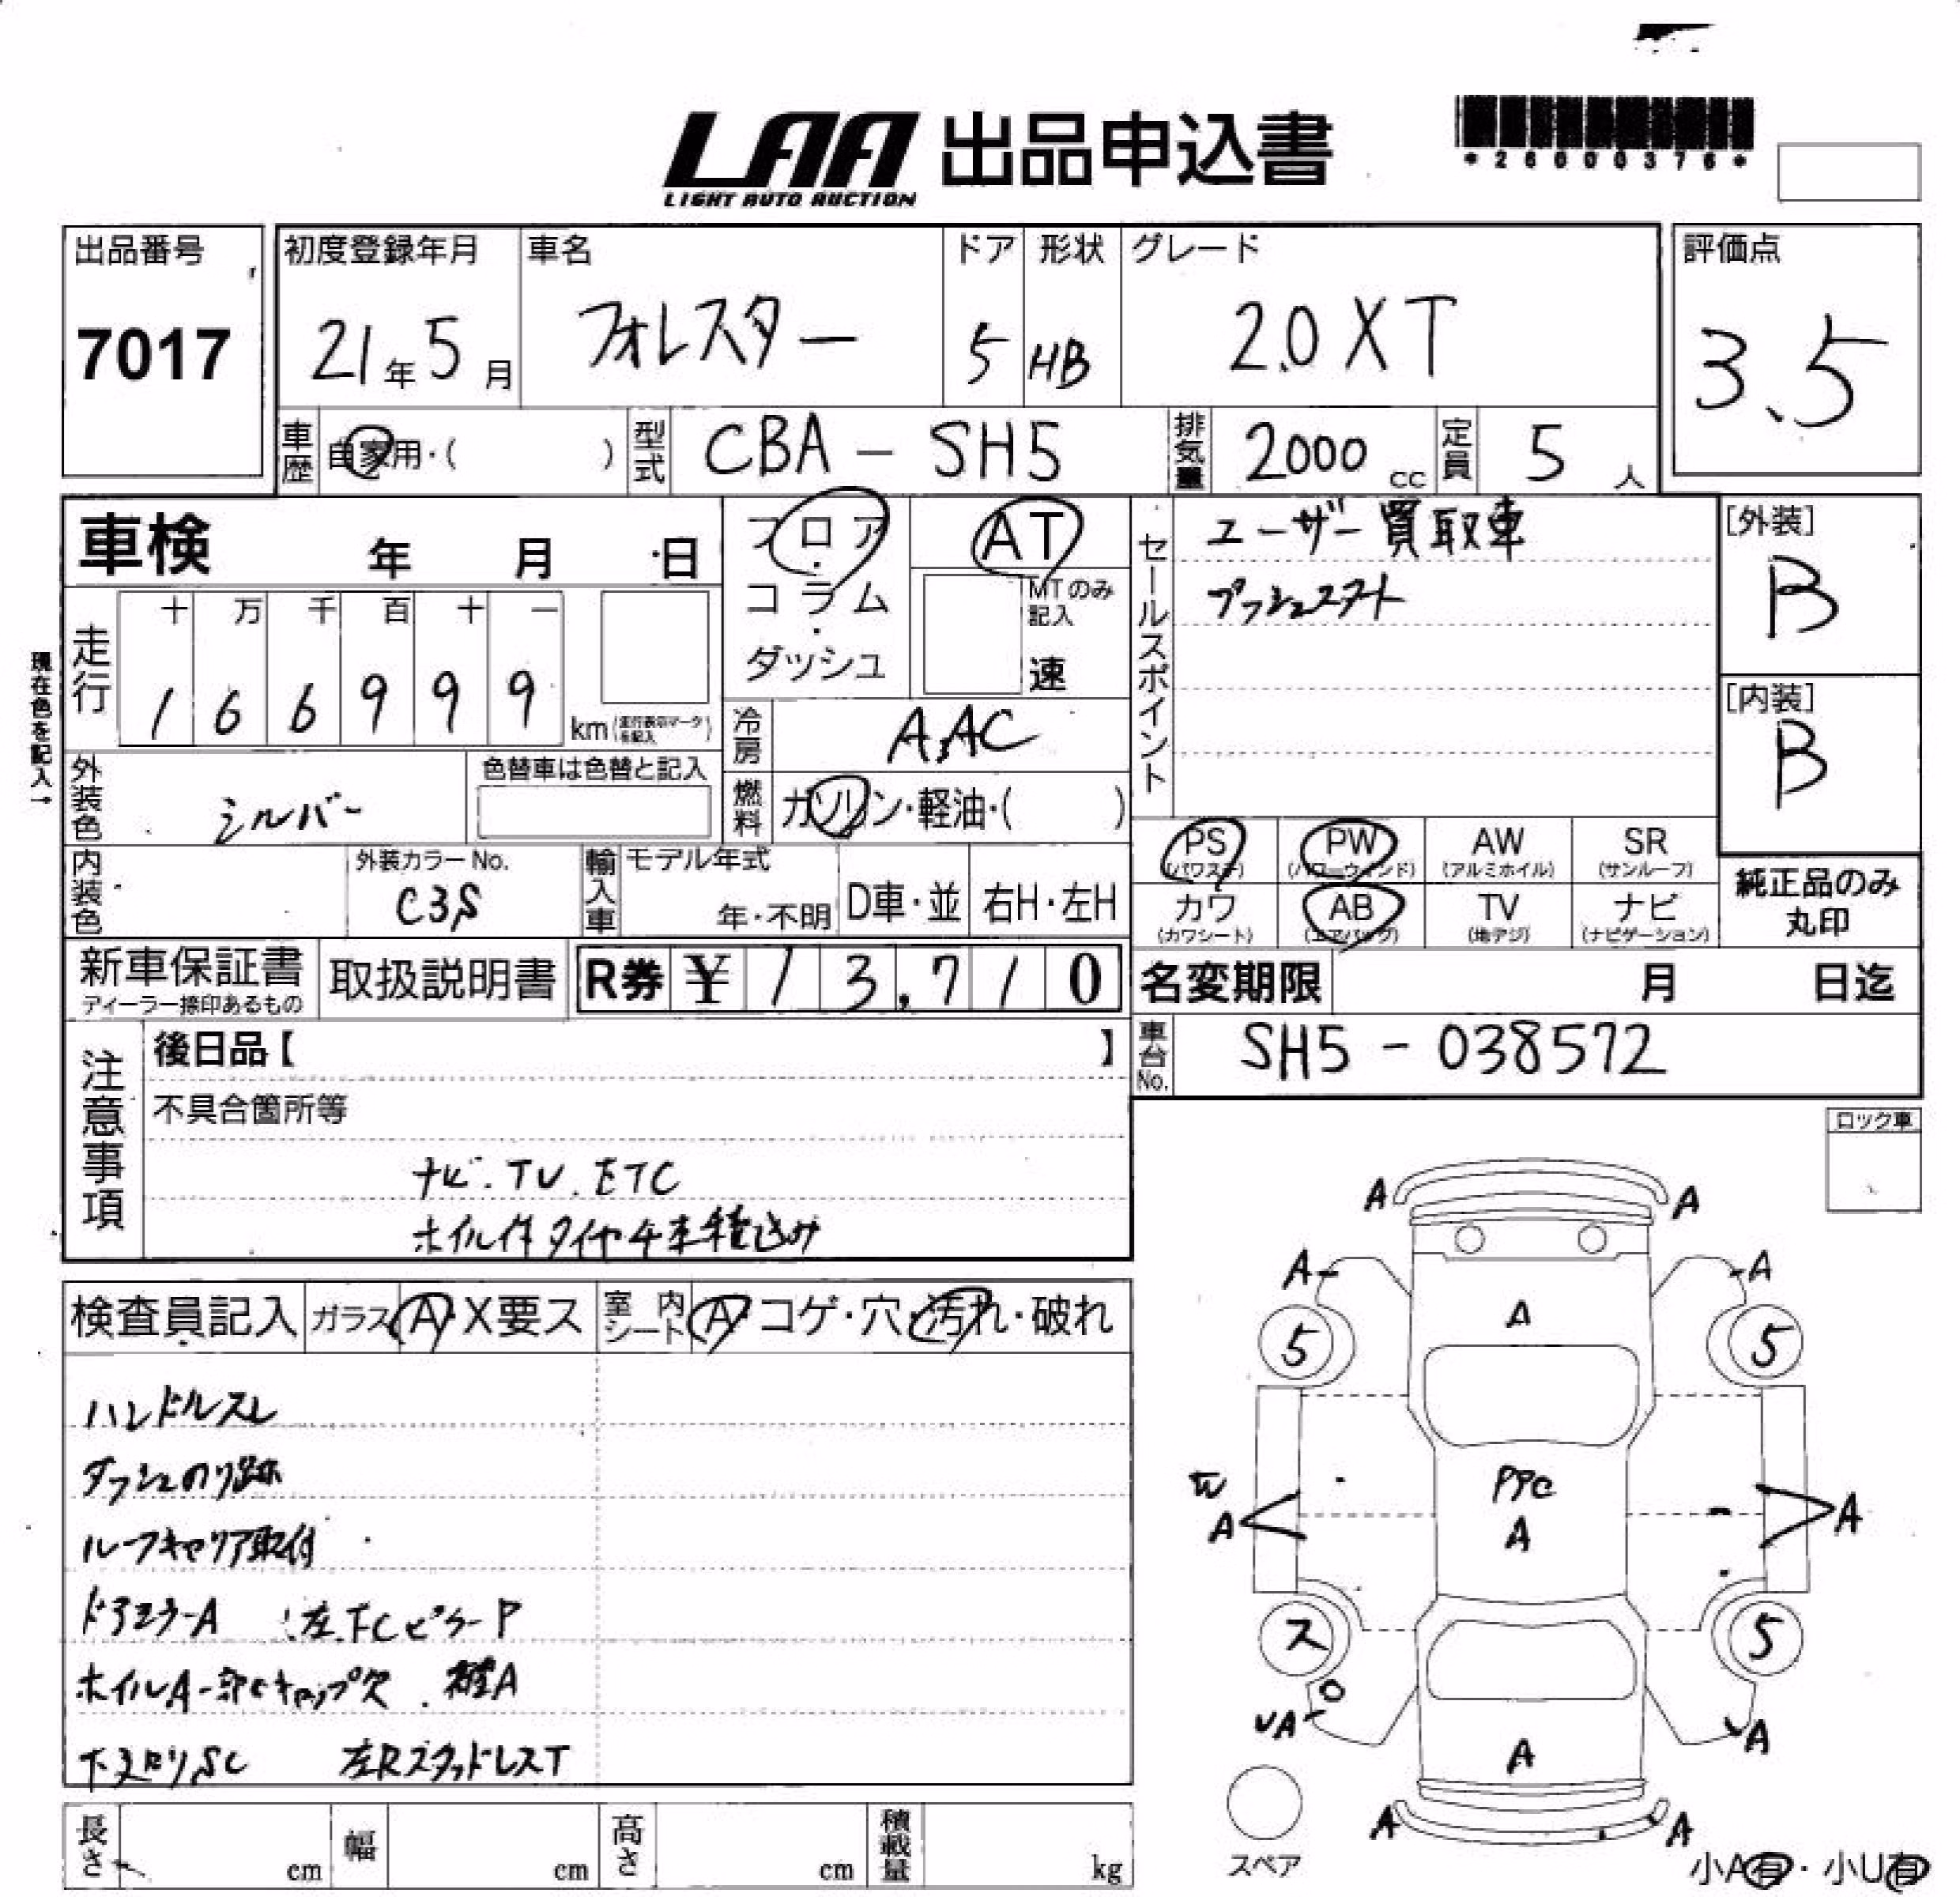 LAA 出品申込書
LIGHT AUTO AUCTION
*26000376*
出品番号
7017
初度登録年月
21年5月
車名
フォレスター
ドア
5
形状
HB
グレード
2.0XT
評価点
3.5
車歴
自家用・( )
型式
CBA-SH5
排気量
2000cc
定員
5人
車検 年 月 日
フロア・コラム・ダッシュ
AT
MTのみ記入
速
セールスポイント
ユーザー買取車
プッシュスタート
[外装]
B
[内装]
B
現在色を記入→
走行
十 万 千 百 十 一
1 6 6 9 9 9
km (走行表示マークを記入)
冷房
AAC
燃料
ガソリン・軽油・( )
外装色
シルバー
色替車は色替と記入
内装色
外装カラーNo.
C3S
輸入車
モデル年式
年・不明
D車・並
右H・左H
PS (パワステ)
PW (パワーウインド)
AW (アルミホイル)
SR (サンルーフ)
カワ (カワシート)
AB (エアバッグ)
TV (地デジ)
ナビ (ナビゲーション)
純正品のみ丸印
新車保証書
ディーラー捺印あるもの
取扱説明書
R券 ¥13,710
名変期限 月 日迄
車台No.
SH5-038572
注意事項
後日品【 】
不具合箇所等
ナビ.TV.ETC
ホイル付タイヤ4本積込み
ロック車
検査員記入
ガラス A・X要ス
室内シート A・コゲ・穴・汚れ・破れ
ハンドルスレ
ダッシュのり跡
ルーフキャリア取付
ドアミラーA 左下CピラーP
ホイルA一部Cキャップ欠
下廻りSC 左RスタッドレスT
A A
A A
A
5 5
PPC
A
A A
ス 5
A
A A
スペア
小A有・小U有
長さ cm
幅 cm
高さ cm
積載量 kg